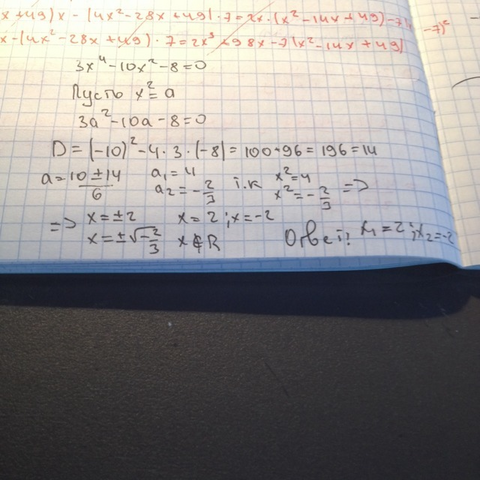 x+49)x-(4x²-28x+49)·7=2x·(x²-14x+49)-7(
-7)²
x-(4x²-28x+49)·7=2x³+98x-7(x²-14x+49)
3x⁴-10x²-8=0
Пусть x²=a
3a²-10a-8=0
D=(-10)²-4·3·(-8)=100+96=196=14
a=10±14/6 a₁=4 a₂=-2/3 т.к x²=4 x²=-2/3 =>
=> x=±2 x=2;x=-2
x=±√-2/3 x∉R Ответ: x₁=2;x₂=-2